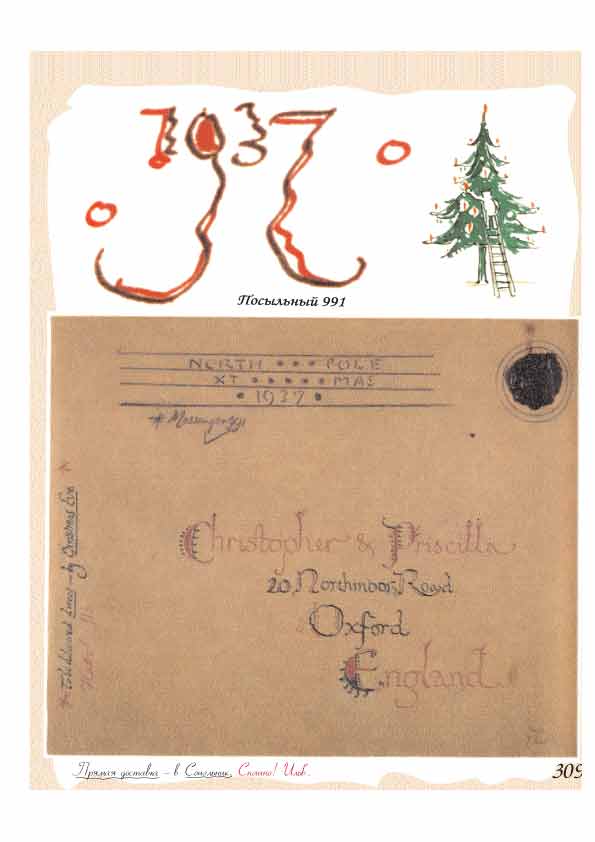 1937
Посыльный 991
NORTH • • • POLE
XT • • • • • MAS
• 1937 •
Christopher & Priscilla
20 Northmoor Road
Oxford
England
To be delivered direct – by Christmas Eve
Прямая доставка – в Сочельник. Сплино! Илб.
309